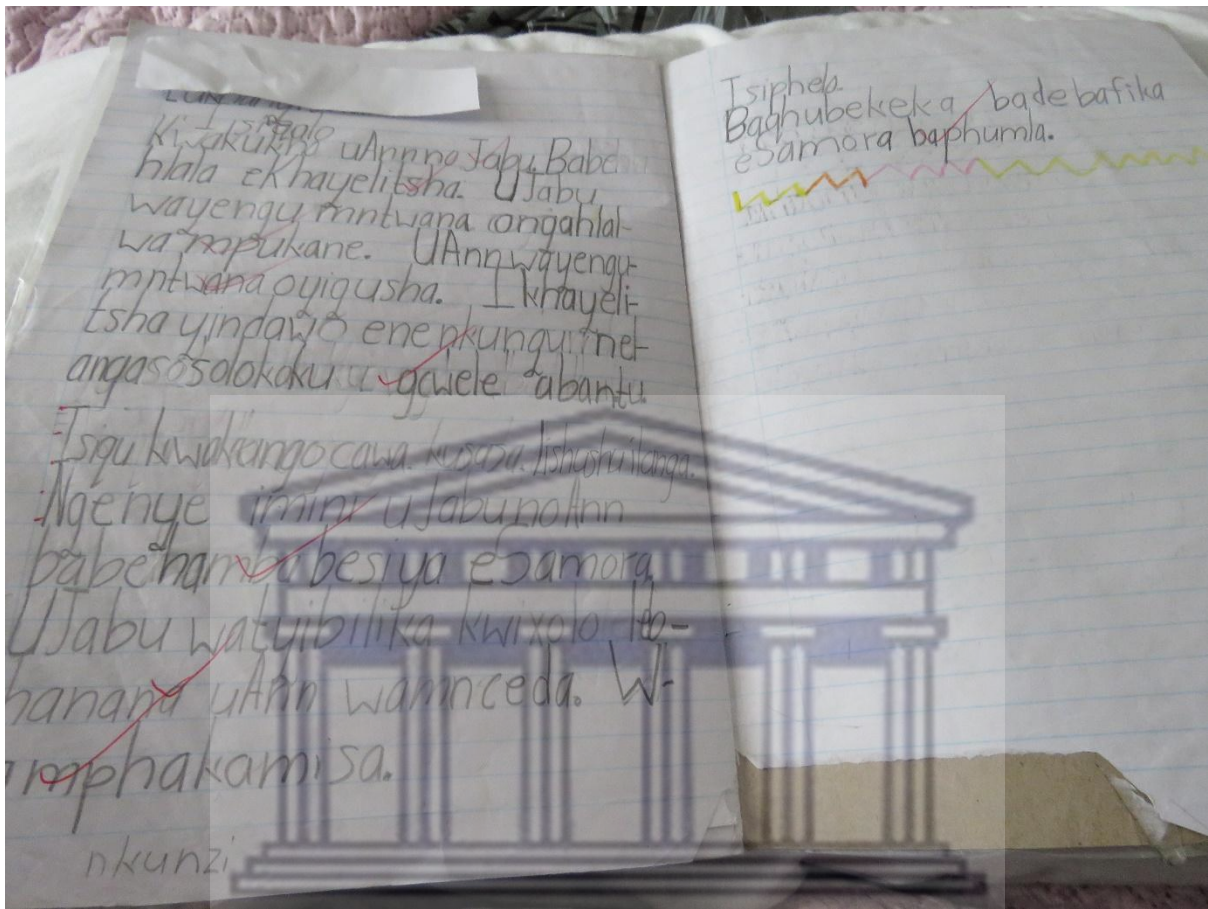 Isiqalo
uAnn no Jabu. Babe
hlala eKhayelitsha. UJabu
wayengu mntwana ongahlal-
wa mpukane. UAnn wayengu-
mntwana oyigusha. I khayeli-
tsha yindawo ene nkungu net
angasosolokoku gcwele abantu
Isiqu kwakango cawa. kusasa. lishushu ilanga.
Ngenye imini uJabu no Ann
babehamba besiya eSamora
UJabu watyibilika kwixolo lto-
hanana uAnn wamnceda. W-
mphakamisa.
nkunzi
Isiphelo
Baqhubekeka bade bafika
eSamora baphumla.